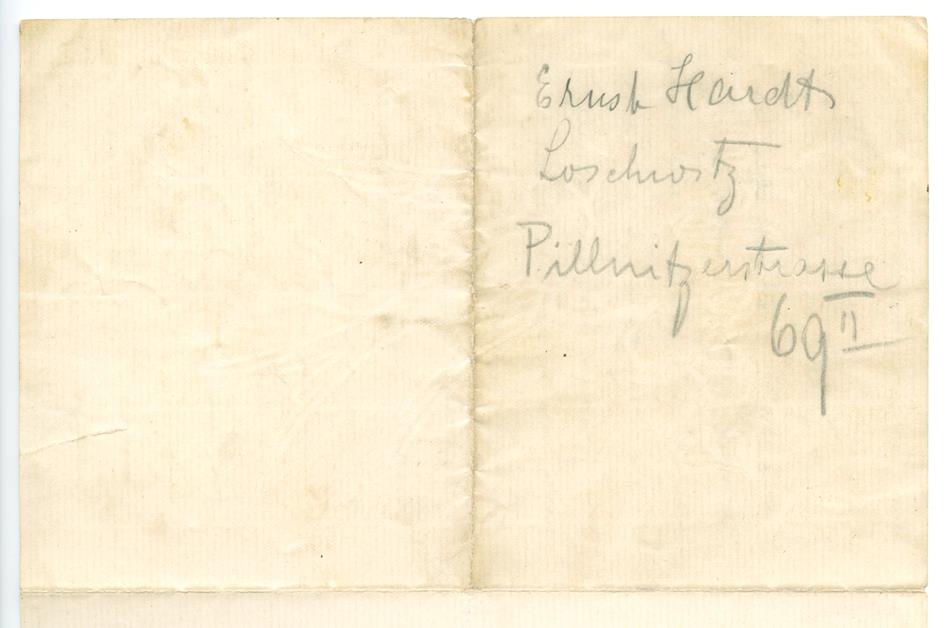 Ernst Hardt
Loschwitz
Pillnitzerstrasse
69 II